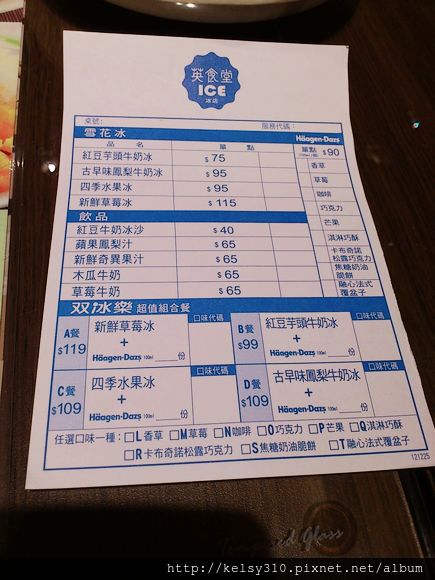 英食堂
ICE
冰店
桌號:
服務代碼:
雪花冰
Häagen-Dazs
品 名
單 點
單點 $90
紅豆芋頭牛奶冰 $75
古早味鳳梨牛奶冰 $95
四季水果冰 $95
新鮮草莓冰 $115
香草
草莓
咖啡
巧克力
芒果
淇淋巧酥
卡布奇諾
松露巧克力
焦糖奶油
脆餅
融心法式
覆盆子
飲品
紅豆牛奶冰沙 $40
蘋果鳳梨汁 $65
新鮮奇異果汁 $65
木瓜牛奶 $65
草莓牛奶 $65
双冰樂 超值組合餐
A餐 $119
新鮮草莓冰
+
Häagen-Dazs 100ml 份
口味代碼
B餐 $99
紅豆芋頭牛奶冰
+
Häagen-Dazs 100ml 份
口味代碼
C餐 $109
四季水果冰
+
Häagen-Dazs 100ml 份
口味代碼
D餐 $109
古早味鳳梨牛奶冰
+
Häagen-Dazs 100ml 份
口味代碼
任選口味一種: □L香草 □M草莓 □N咖啡 □O巧克力 □P芒果 □Q淇淋巧酥
□R卡布奇諾松露巧克力 □S焦糖奶油脆餅 □T融心法式覆盆子
121225
Tempered Glass
http://kelsy310.pixnet.net/album